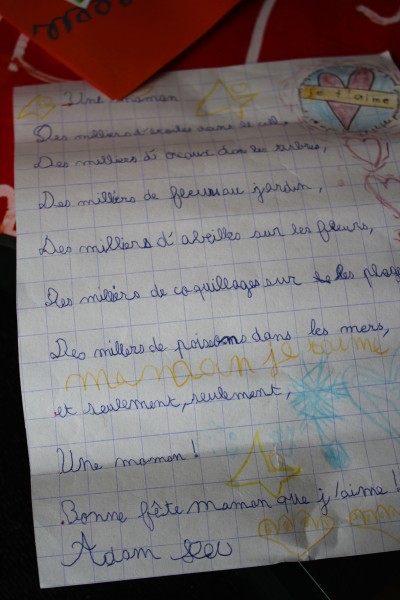 Une maman
je t'aime
Des milliers d'étoiles dans le ciel,
Des milliers d'oiseaux dans les arbres,
Des milliers de fleurs au jardin,
Des milliers d'abeilles sur les fleurs,
Des miliers de coquillages sur les plage
Des millers de poissons dans les mers,
maman je t'aime
et seulement, seulement,
Une maman!
Bonne fête Maman que j'aime!
Adam